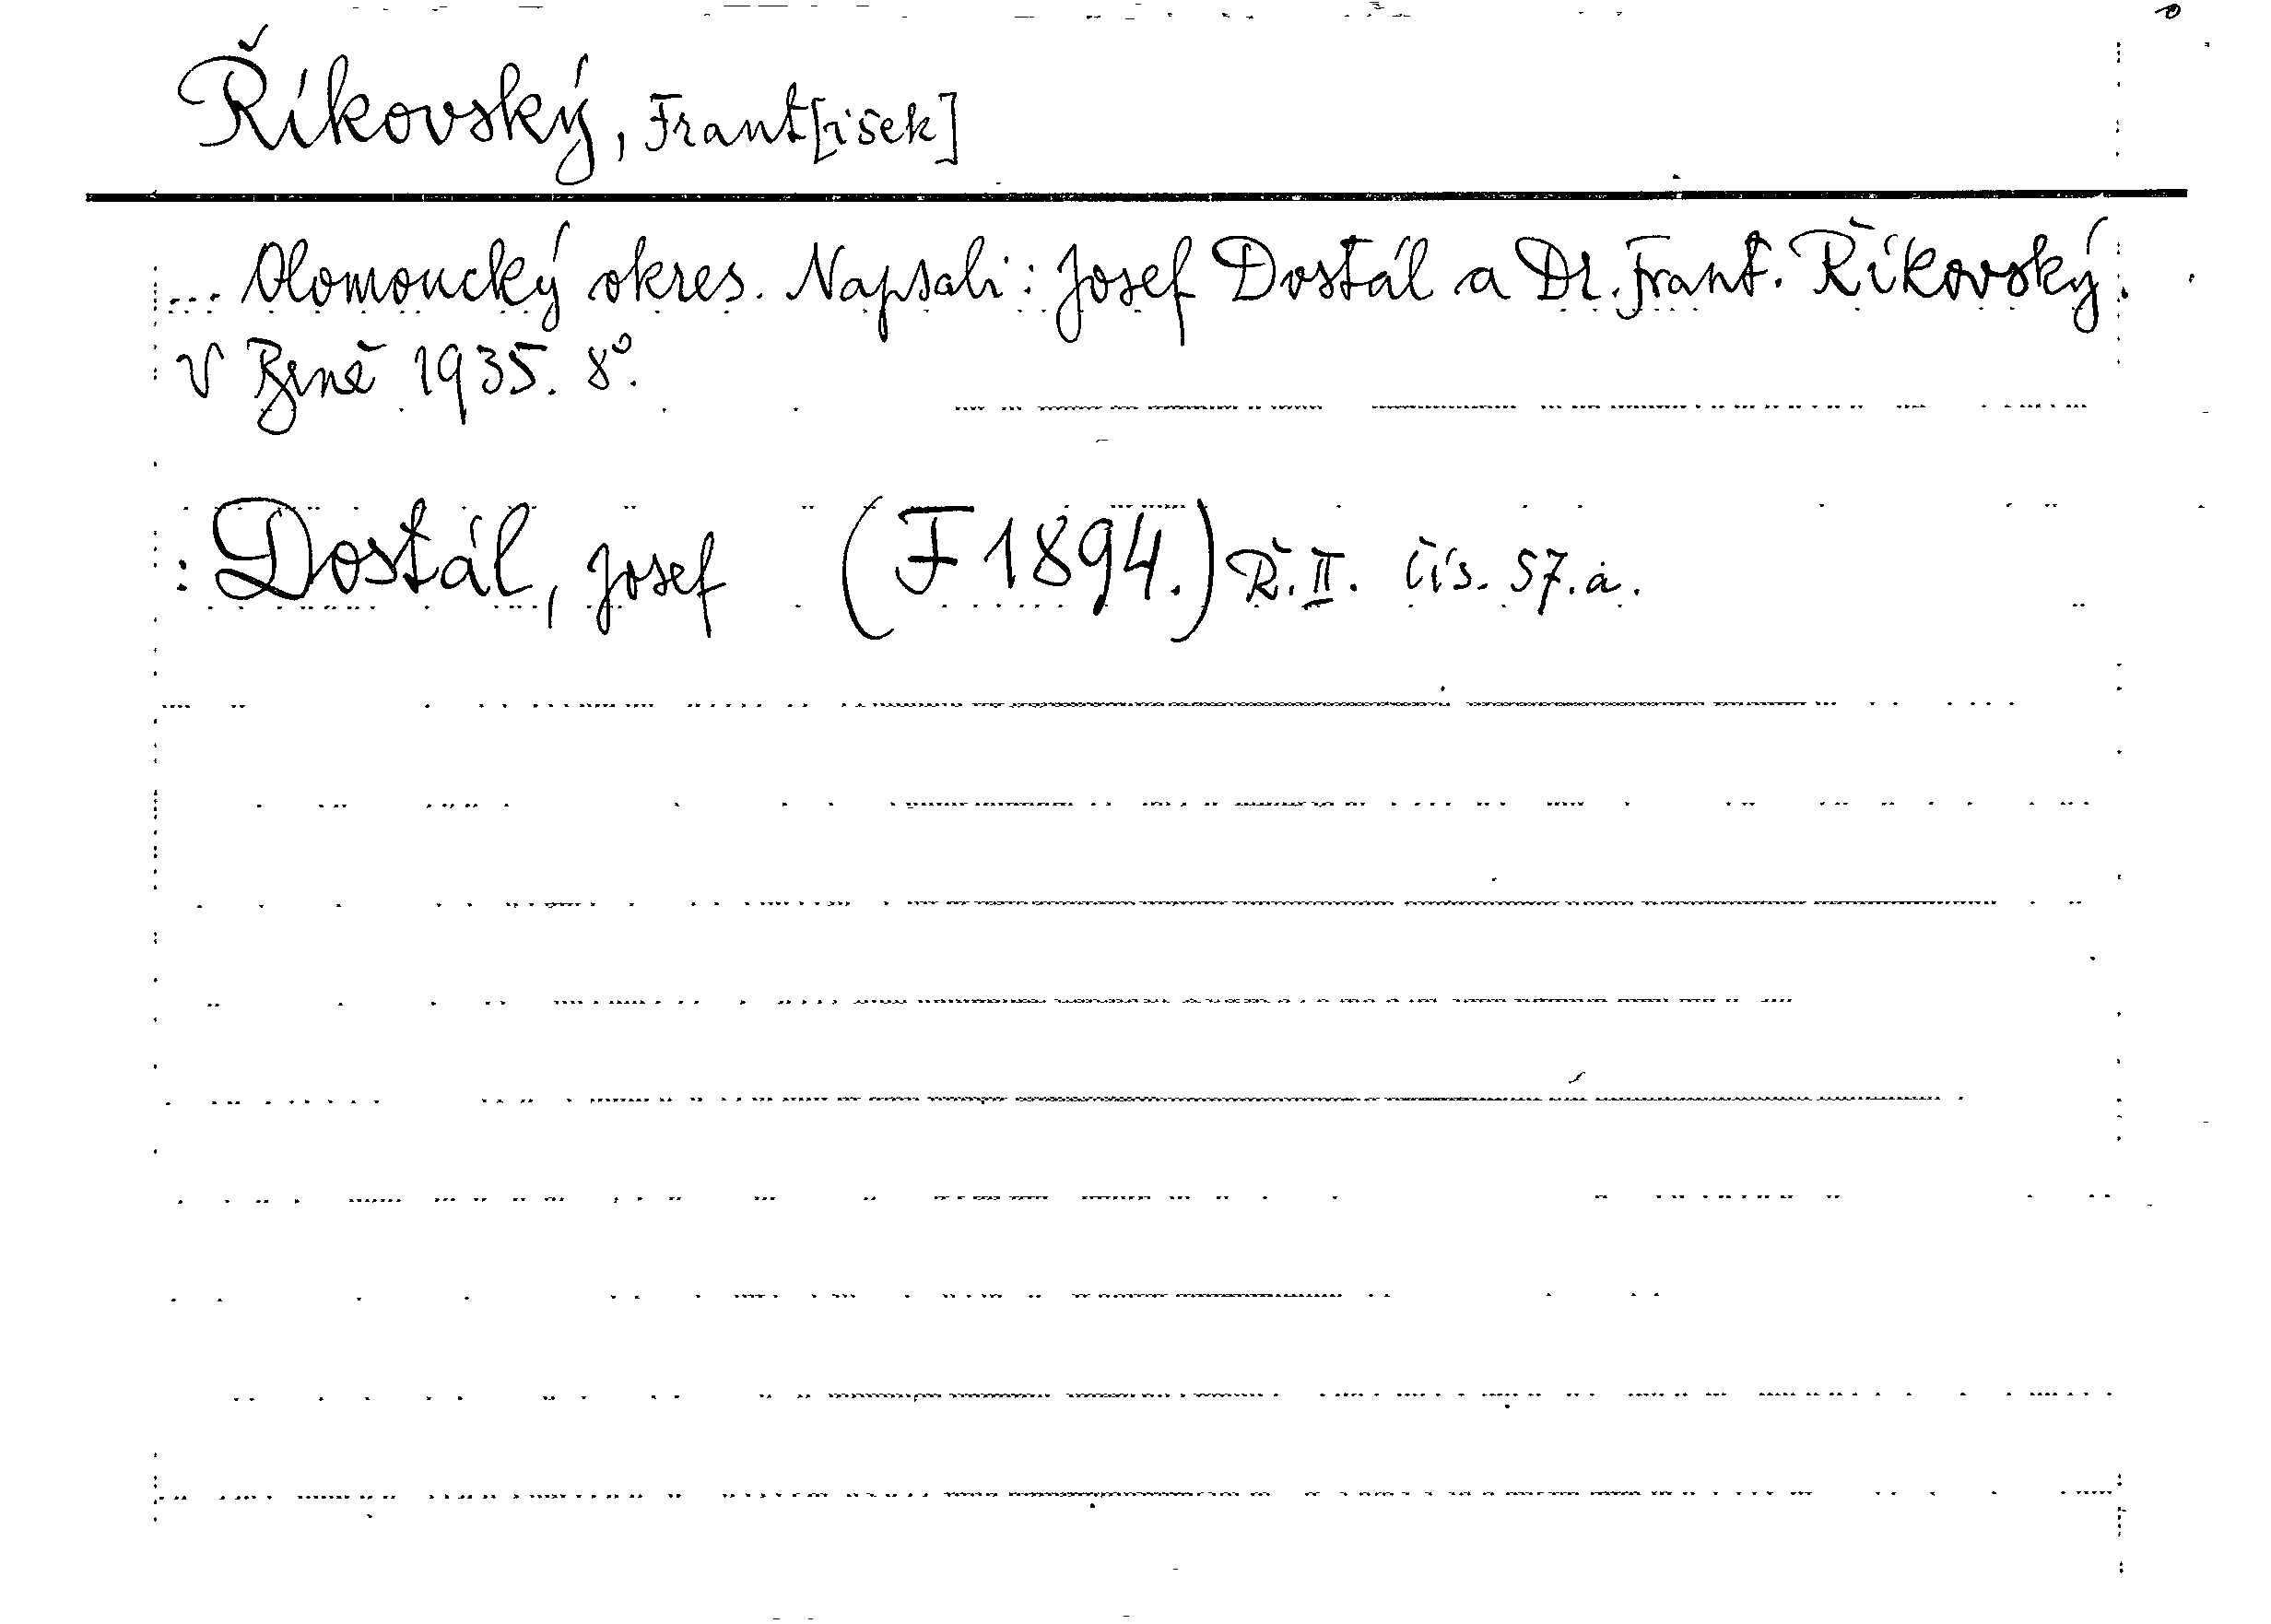 Říkovský, Frant[išek]
... Olomoucký okres. Napsali: Josef Dostál a Dr. Frant. Říkovský.
V Brně 1935. 8°.
: Dostál, Josef (F 1894.) Ř. II. čís. 57. a.